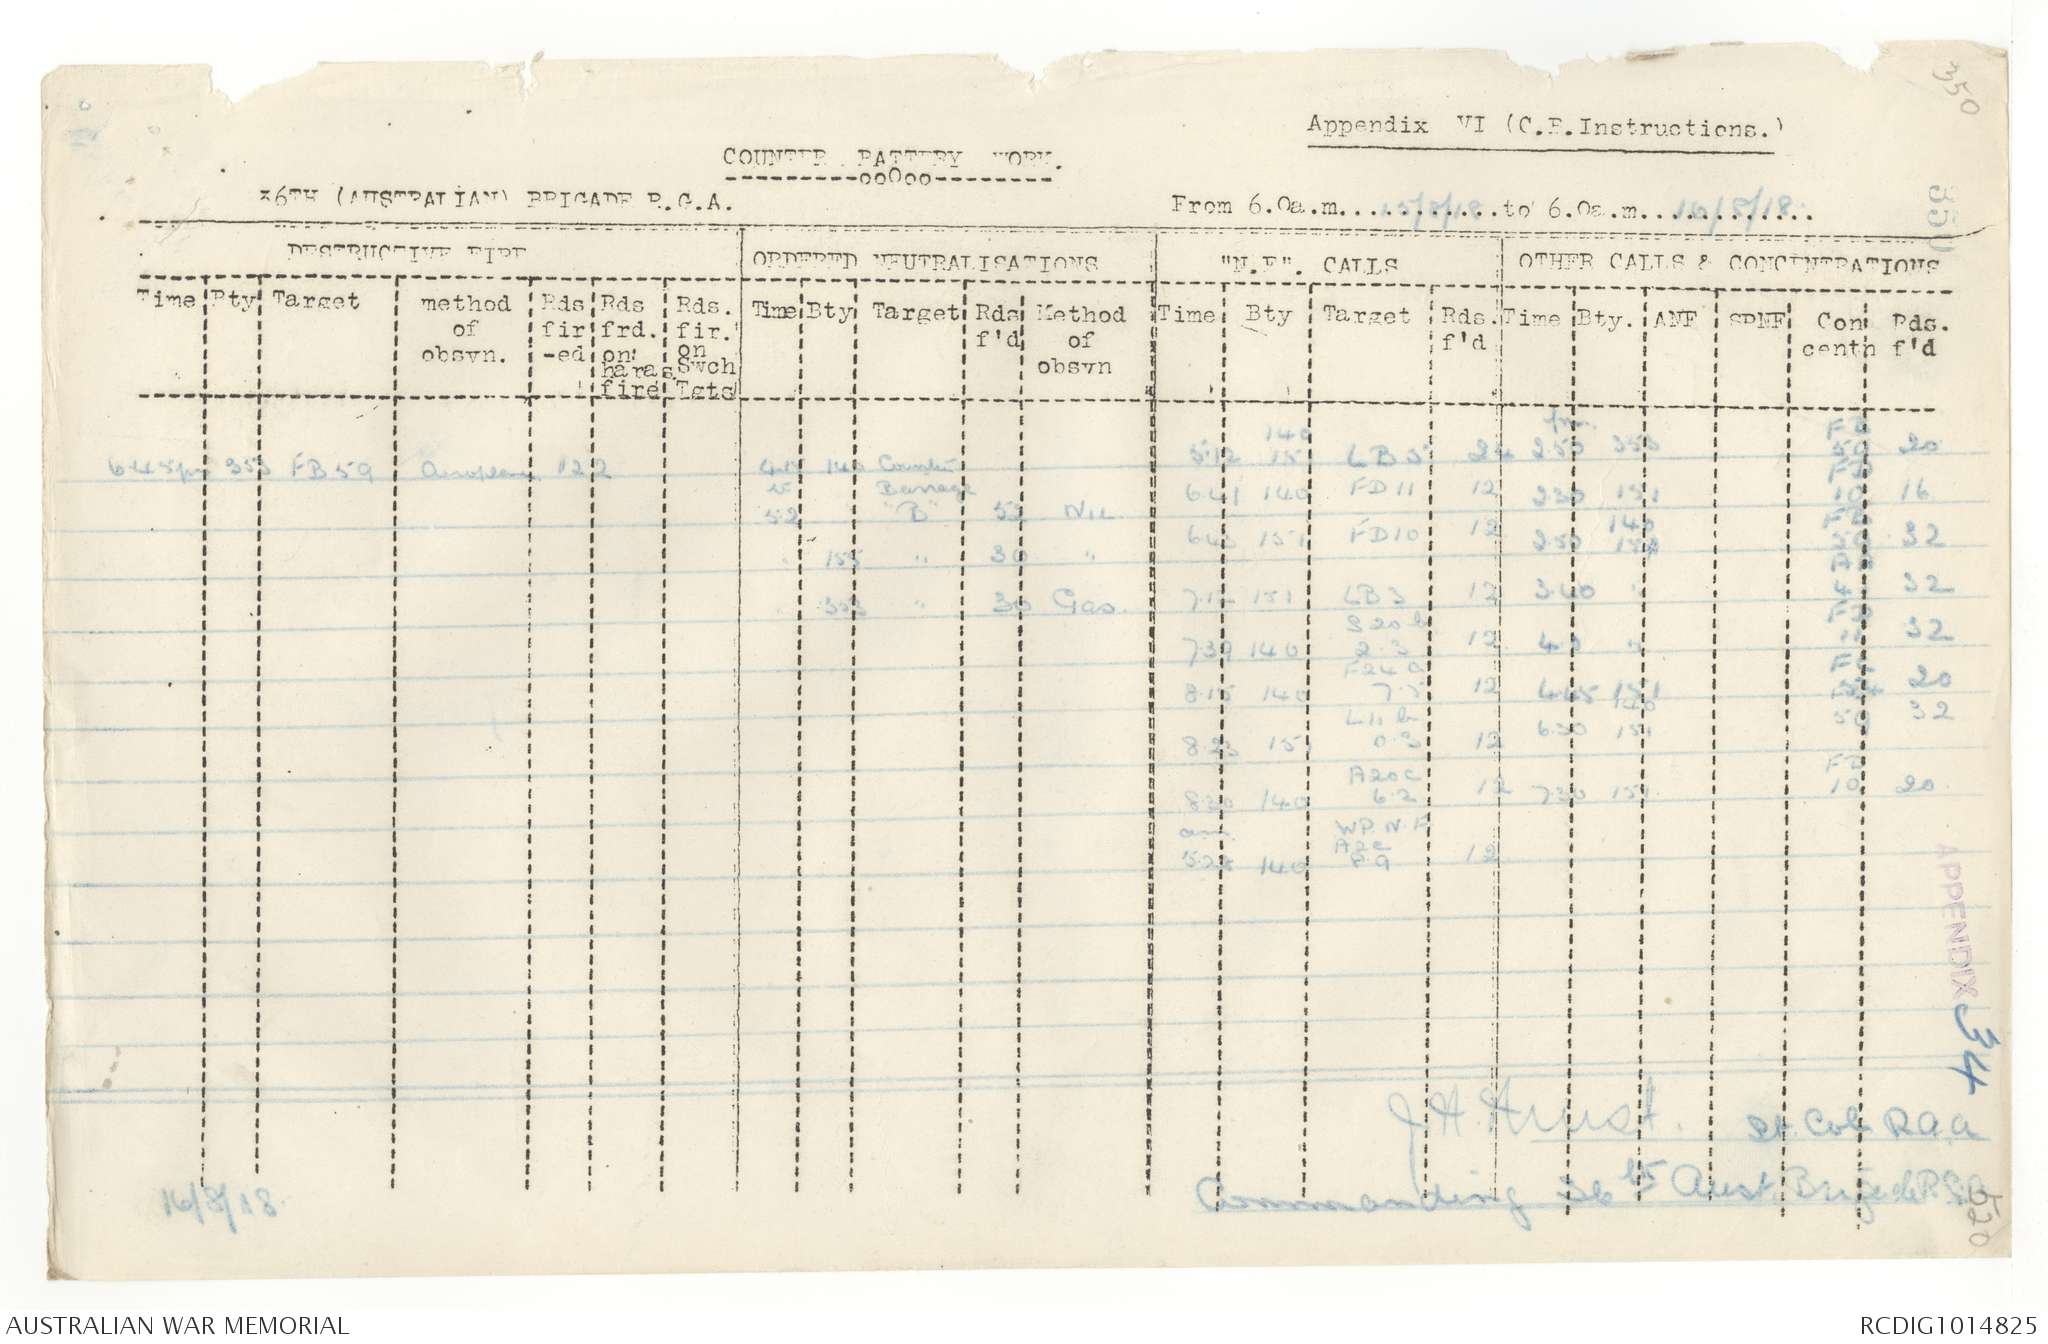 350
Appendix VI (C.B.Instructions.)
COUNTER BATTERY WORK.
36TH (AUSTRALIAN) BRIGADE R.G.A.
From 6.0a.m. 15/8/18 to 6.0a.m. 16/8/18.
350
DESTRUCTIVE FIRE
ORDERED NEUTRALISATIONS
"N.F". CALLS
OTHER CALLS & CONCENTRATIONS
Time Bty Target method of obsvn. Rds fir-ed Rds frd. on haras. fire Rds. fir. on Swch Tgts
Time Bty Target Rds f'd Method of obsvn
Time Bty Target Rds. f'd
Time Bty. ANF SPNF Con centn Rds. f'd
6.45pm 353 FB59 Aeroplane 122
140 Counter Barrage "B" 52 Nil
5.2
155 " 30 "
353 " 30 Gas.
140
5.12 151 LB5 24
6.41 140 FD11 12
6.43 151 FD10 12
7.12 151 LB3 12
S20b
7.39 140 2.3 12
F24a
8.15 140 7.5 12
L11b
8.23 151 0.3 12
A20c
8.30 140 6.2 12
am WP.N.F
A2c
5.28 140 8.9 12
pm
2.50 353 20
2.30 151 10 16
140
2.50 32
3.40 " 32
4.0 " 11 32
4.45 151 20
140
6.30 151 59 32
FD
7.30 151 10 20
APPENDIX 34
J.H. Hurst. Lt. Col. R.A.A
Commanding 36th Aust. Brigade R.G.A
16/8/18.
520
AUSTRALIAN WAR MEMORIAL
RCDIG1014825